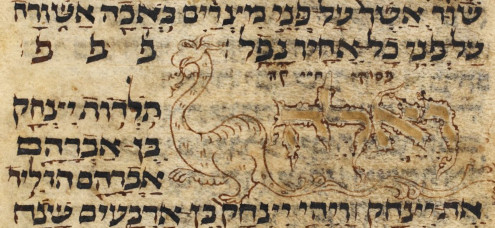 שור אשר על פני מצרים באכה אשורה
על פני כל אחיו נפל
ואלה
תלדות יצחק
בן אברהם
אברהם הוליד
את יצחק ויהי יצחק בן ארבעים שנה